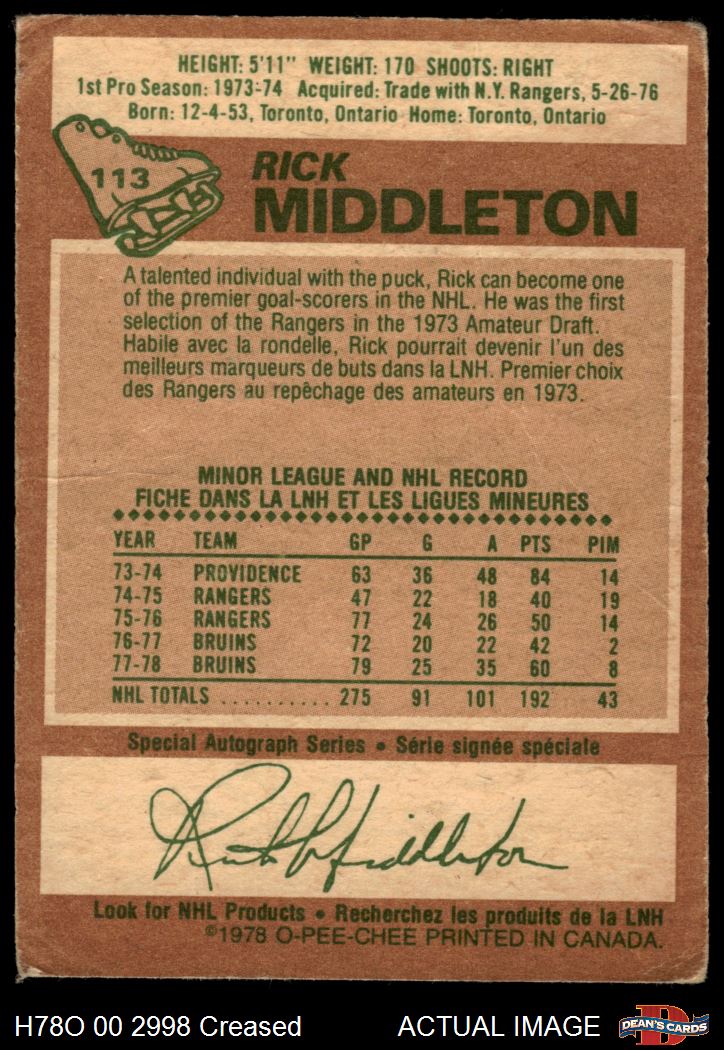 HEIGHT: 5'11" WEIGHT: 170 SHOOTS: RIGHT
1st Pro Season: 1973-74 Acquired: Trade with N.Y. Rangers, 5-26-76
Born: 12-4-53, Toronto, Ontario Home: Toronto, Ontario
113
RICK
MIDDLETON
A talented individual with the puck, Rick can become one
of the premier goal-scorers in the NHL. He was the first
selection of the Rangers in the 1973 Amateur Draft.
Habile avec la rondelle, Rick pourrait devenir l'un des
meilleurs marqueurs de buts dans la LNH. Premier choix
des Rangers au repêchage des amateurs en 1973.
MINOR LEAGUE AND NHL RECORD
FICHE DANS LA LNH ET LES LIGUES MINEURES
YEAR TEAM GP G A PTS PIM
73-74 PROVIDENCE 63 36 48 84 14
74-75 RANGERS 47 22 18 40 19
75-76 RANGERS 77 24 26 50 14
76-77 BRUINS 72 20 22 42 2
77-78 BRUINS 79 25 35 60 8
NHL TOTALS .......... 275 91 101 192 43
Special Autograph Series • Série signée spéciale
Rick Middleton
Look for NHL Products • Recherchez les produits de la LNH
©1978 O-PEE-CHEE PRINTED IN CANADA.
H78O 00 2998 Creased ACTUAL IMAGE
D
DEAN'S CARDS